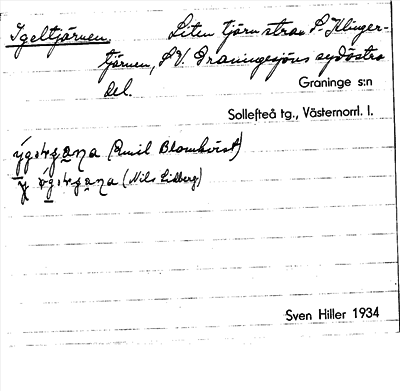 Igeltjärnen Liten tjärn strax S. Klinger-
tjärnen, SV. Graningesjöns sydöstra
del.
Graninge s:n
Sollefteå tg., Västernorrl. l.
(Emil Blomkvist)
(Nils Lidberg)
Sven Hiller 1934